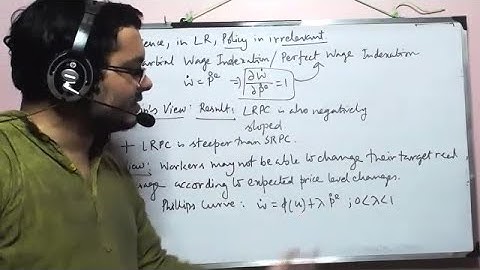 ence, in LR, Policy in irrelevant.
artial Wage Indexation/ Perfect Wage Indexation
ẇ = ṗᵉ → ∂ẇ/∂ṗᵉ = 1
n's View: Result: LRPC is also negatively
sloped
+ LRPC is steeper than SRPC.
View: Workers may not be able to change their target real
wage according to expected price level changes.
Phillips Curve: ẇ = f(u) + λ ṗᵉ ; 0<λ<1